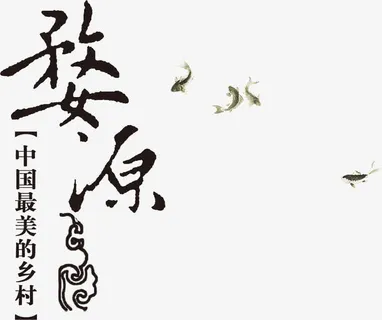 婺源
【中国最美的乡村】